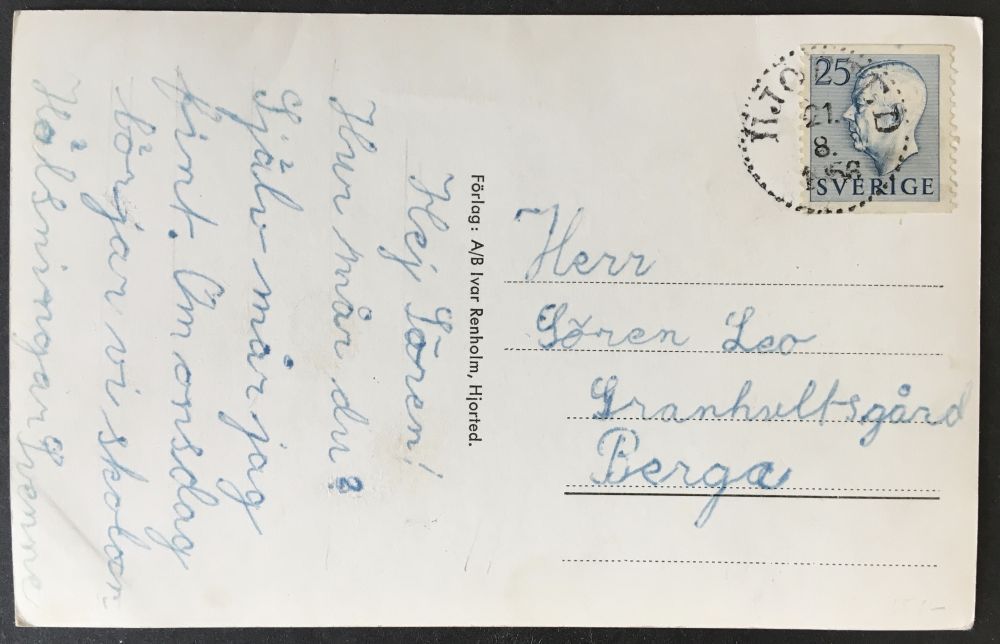 Hej Sören!
Hur mår du?
Själv mår jag
fint. Om onsdag
börjar vi skolan
Hälsningar Svenne
Förlag: A/B Ivar Renholm, Hjorted.
25
SVERIGE
HJORTED
21.
8.
Herr
Sören Leo
Granhultsgård
Berga